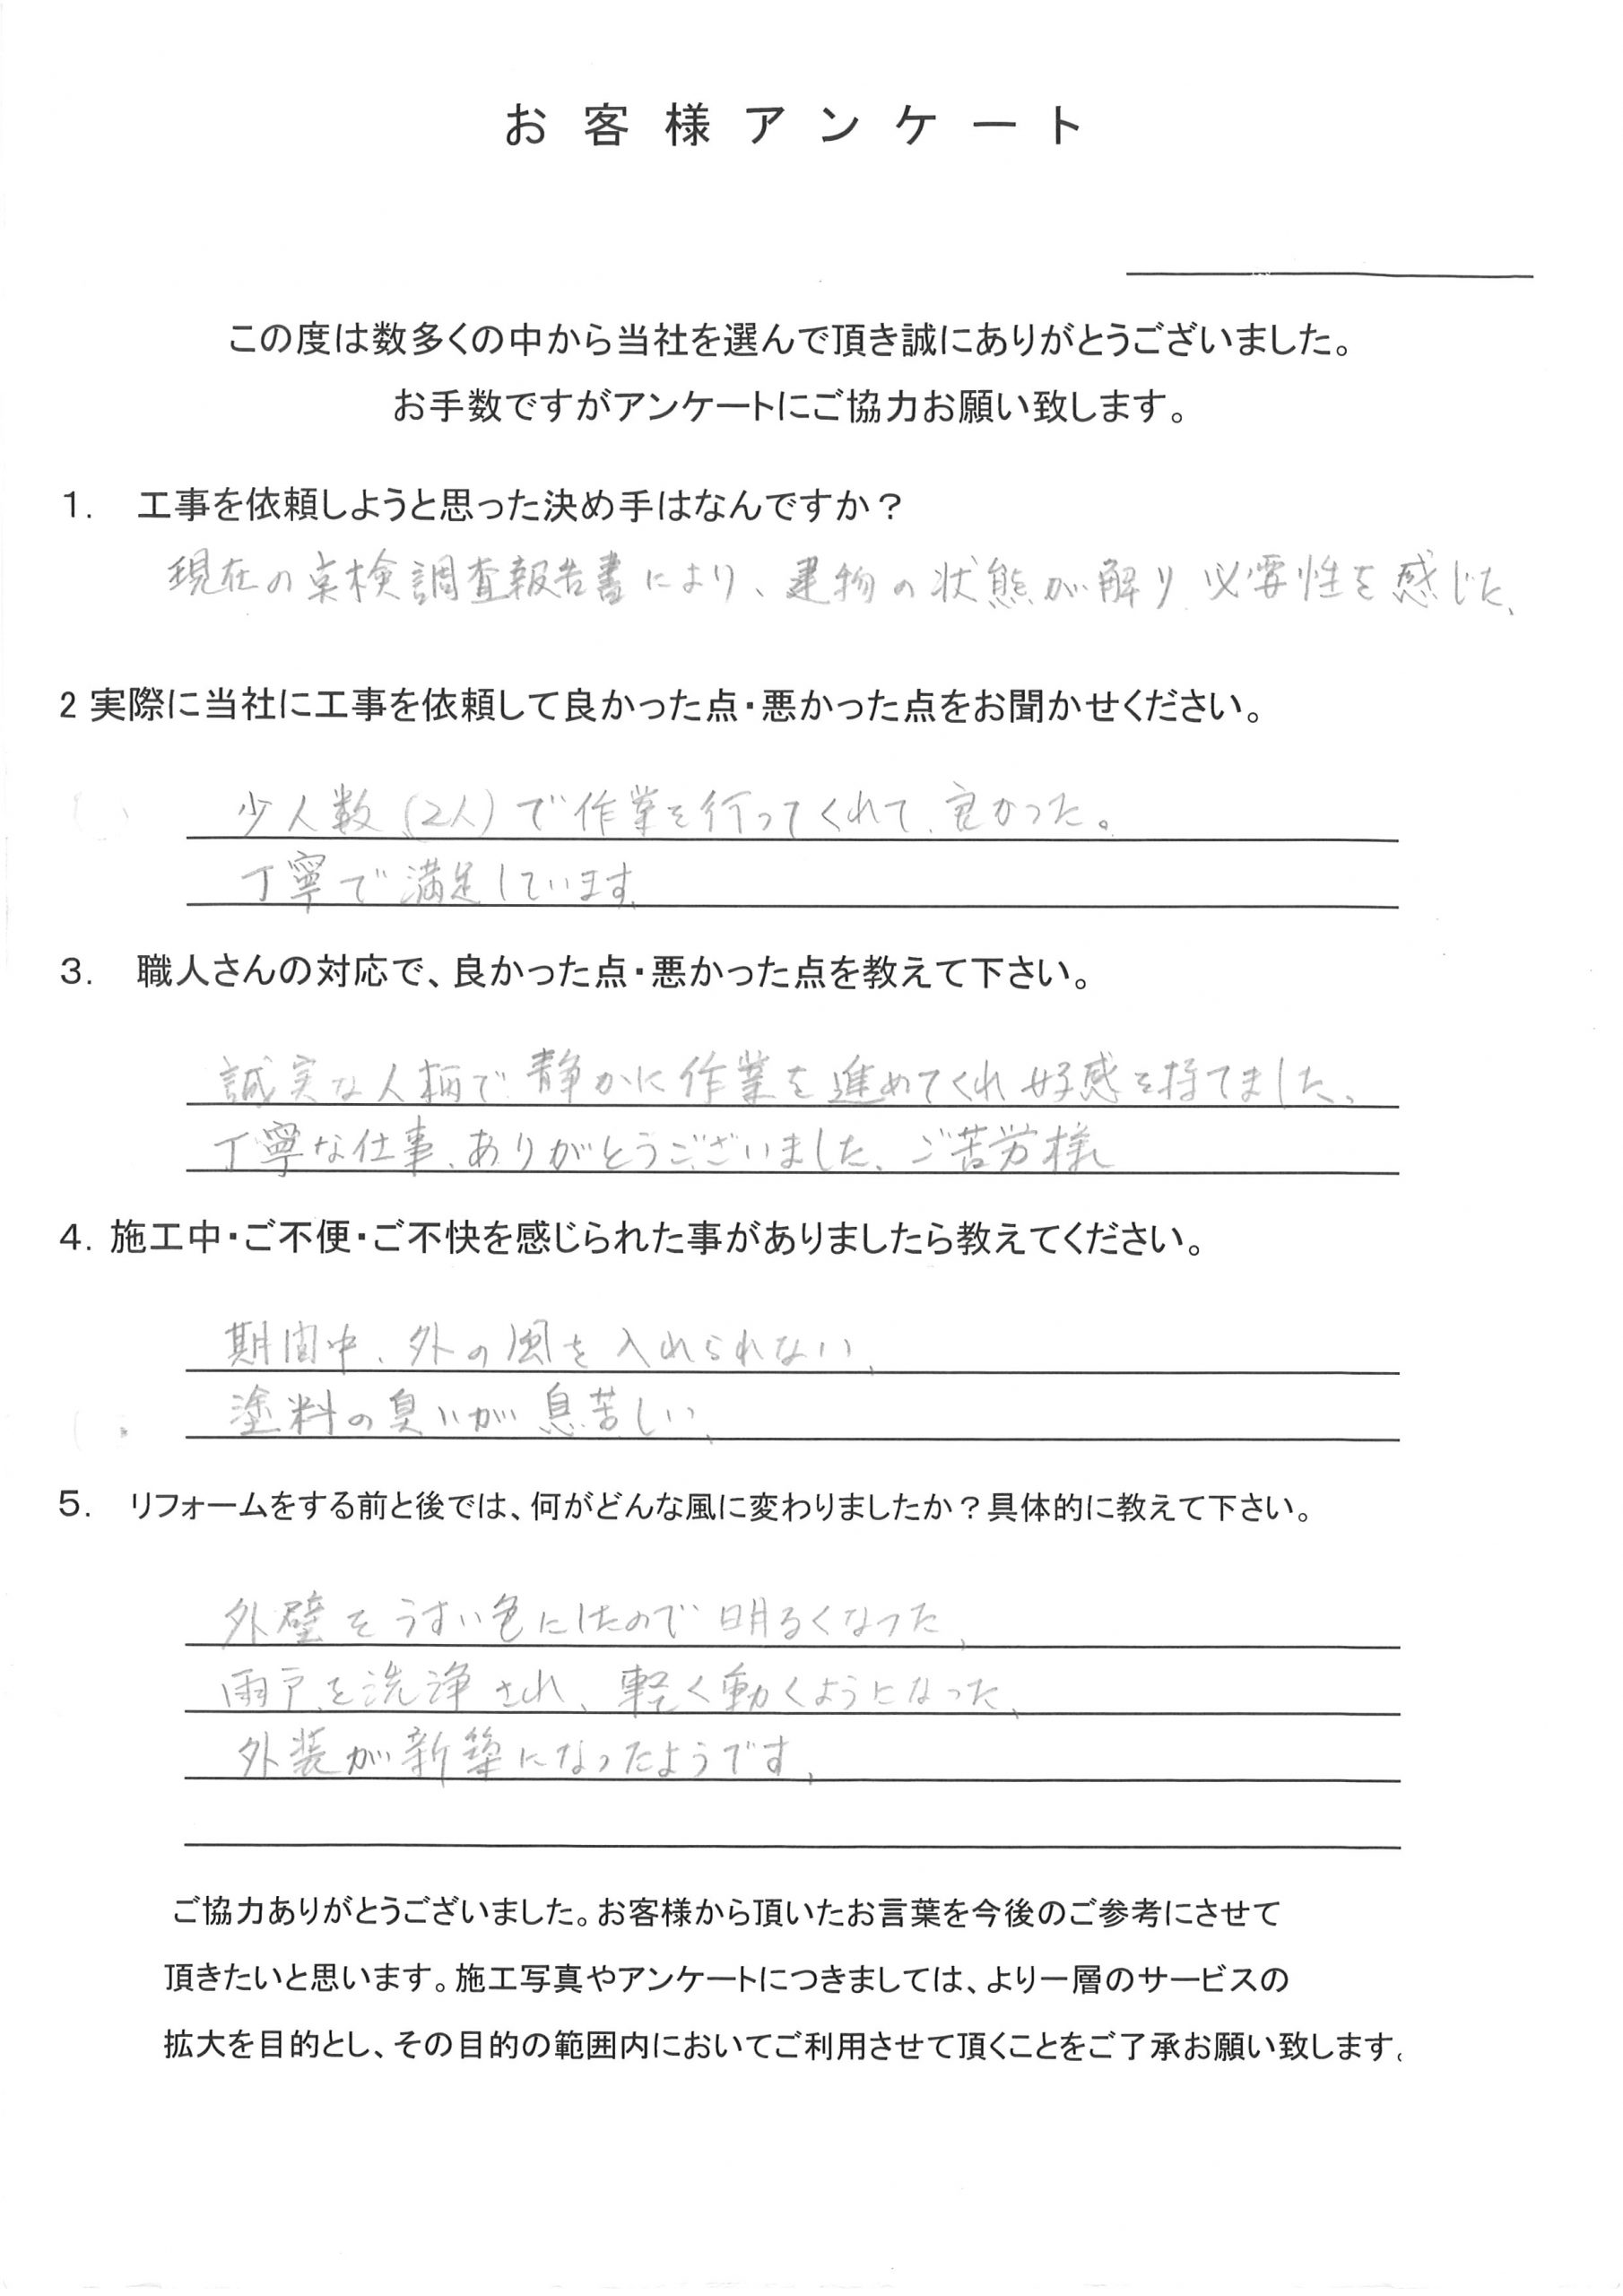 お客様アンケート
この度は数多くの中から当社を選んで頂き誠にありがとうございました。
お手数ですがアンケートにご協力お願い致します。
1. 工事を依頼しようと思った決め手はなんですか？
現在の点検調査報告書により、建物の状態が解り、必要性を感じた、
2 実際に当社に工事を依頼して良かった点・悪かった点をお聞かせください。
少人数(2人)で作業を行ってくれて、良かった。
丁寧で満足しています、
3. 職人さんの対応で、良かった点・悪かった点を教えて下さい。
誠実な人柄で静かに作業を進めてくれ好感を持てました、
丁寧な仕事、ありがとうございました、ご苦労様
4. 施工中・ご不便・ご不快を感じられた事がありましたら教えてください。
期間中、外の風を入れられない、
塗料の臭いが息苦しい、
5. リフォームをする前と後では、何がどんな風に変わりましたか？具体的に教えて下さい。
外壁をうすい色にしたので明るくなった、
雨戸を洗浄され、軽く動くようになった、
外装が新築になったようです、
ご協力ありがとうございました。お客様から頂いたお言葉を今後のご参考にさせて
頂きたいと思います。施工写真やアンケートにつきましては、より一層のサービスの
拡大を目的とし、その目的の範囲内においてご利用させて頂くことをご了承お願い致します。